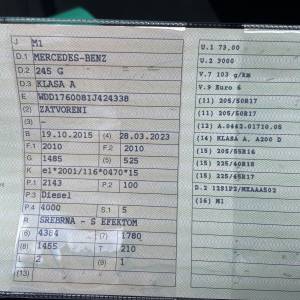 J M1
D.1 MERCEDES-BENZ
D.2 245 G
D.3 KLASA A
E WDD1760081J424338
(2) ZATVORENI
(3) -
B 19.10.2015 (4) 28.03.2023
F.1 2010 F.2 2010
G 1485 (5) 525
K e1*2001/116*0470*15
P.1 2143 P.2 100
P.3 Diesel
P.4 4000 S.1 5
R SREBRNA - S EFEKTOM
(6) 4384 (7) 1780
(8) 1455 T 210
L 2 (9) 1
(13)
U.1 73,00
U.2 3000
V.7 103 g/km
V.9 Euro 6
(11) 205/50R17
(11) 205/50R17
(12) A.0442.01710.05
(14) KLASA A, A200 D
(15) 205/55R16
(15) 225/40R18
(15) 225/45R17
D.2 12B1P2/MZAAA502
(16) M1